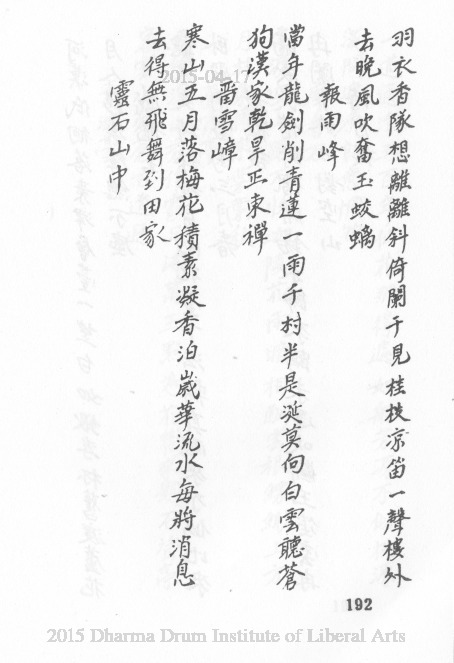 羽衣香隊想離離斜倚闌干見桂枝凉笛一聲樓外
去晚風吹奮玉蛟螭
報雨峰
當年龍劍削青蓮一雨千村半是涎莫向白雲聽蒼
狗漢家乾旱正東禪
畨雪嶂
寒山五月落梅花積素凝香泊歲華流水每將消息
去得無飛舞到田家
靈石山中
2015-04-17
192
2015 Dharma Drum Institute of Liberal Arts